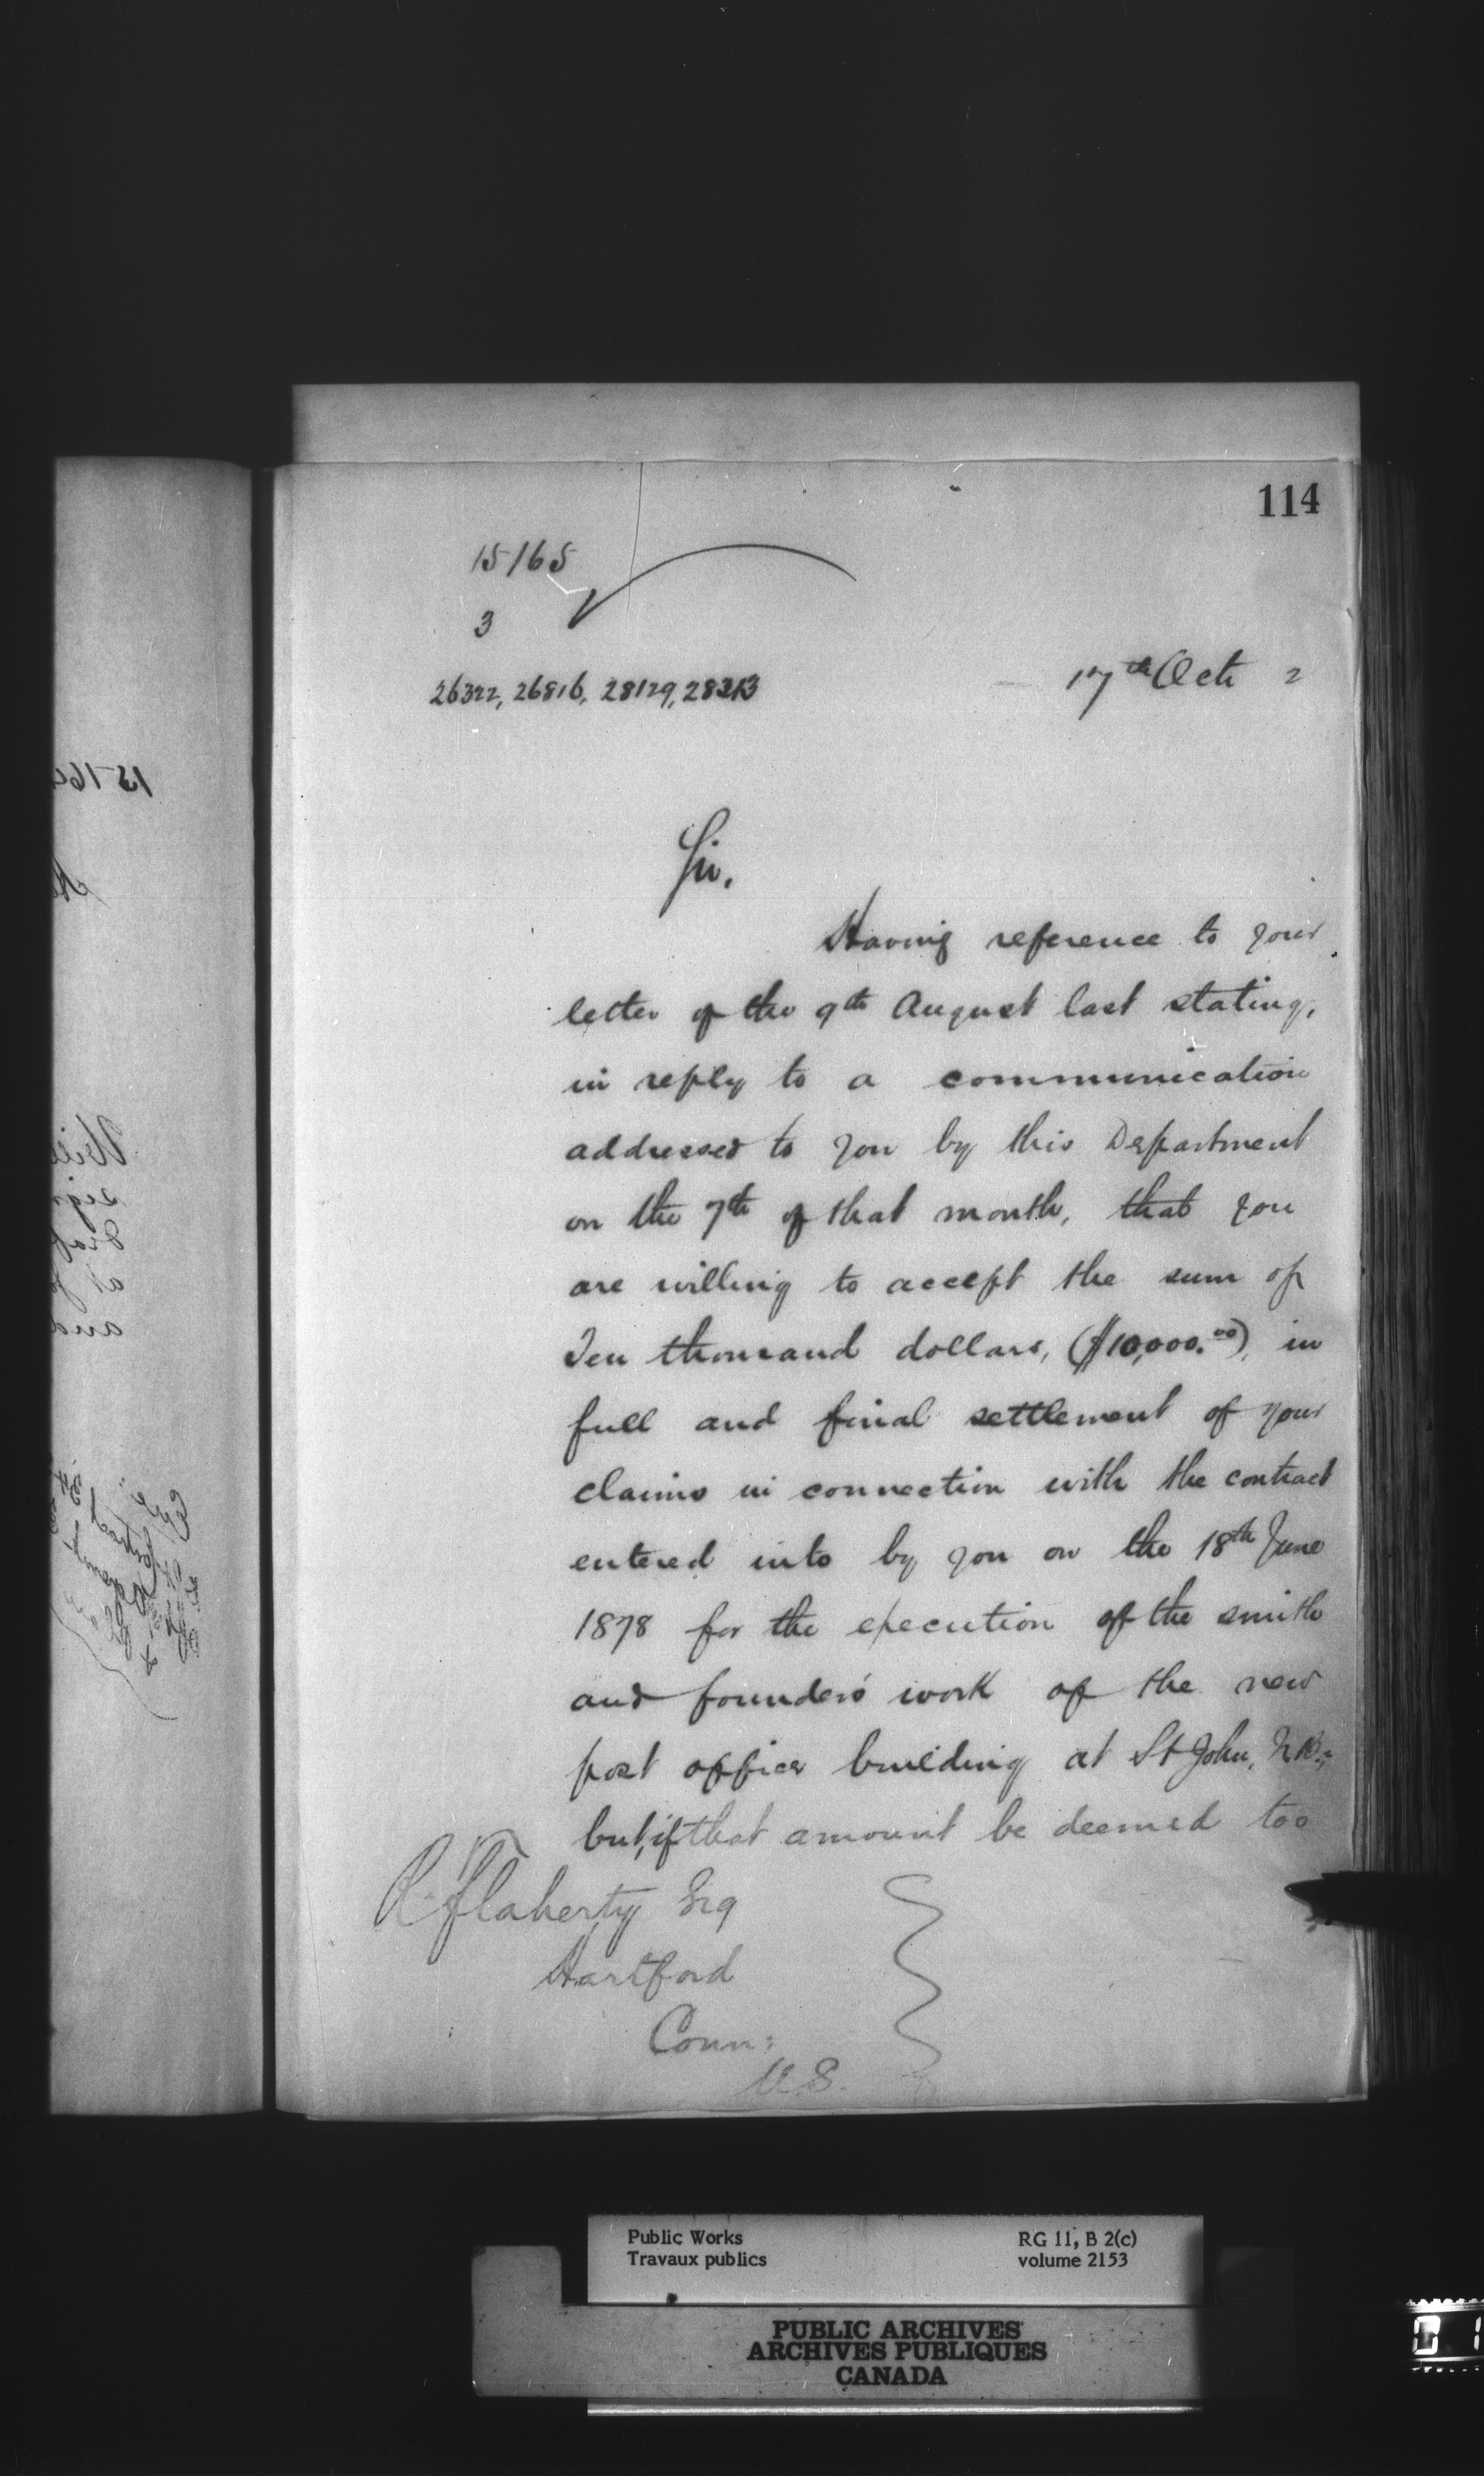 114
15165
3
26322, 26816, 28129, 28213
17th Oct 2
Sir,
Having reference to your
letter of the 9th August last stating,
in reply to a communication
addressed to you by this Department
on the 7th of that month, that you
are willing to accept the sum of
Ten thousand dollars, ($10,000.00), in
full and final settlement of your
claims in connection with the contract
entered into by you on the 18th June
1878 for the execution of the smith
and founders' work of the new
post office building at St John, N.B.;
but, if that amount be deemed too
R. Flaherty Esq
Hartford
Conn:
U.S.
Public Works
Travaux publics
RG 11, B 2(c)
volume 2153
PUBLIC ARCHIVES
ARCHIVES PUBLIQUES
CANADA